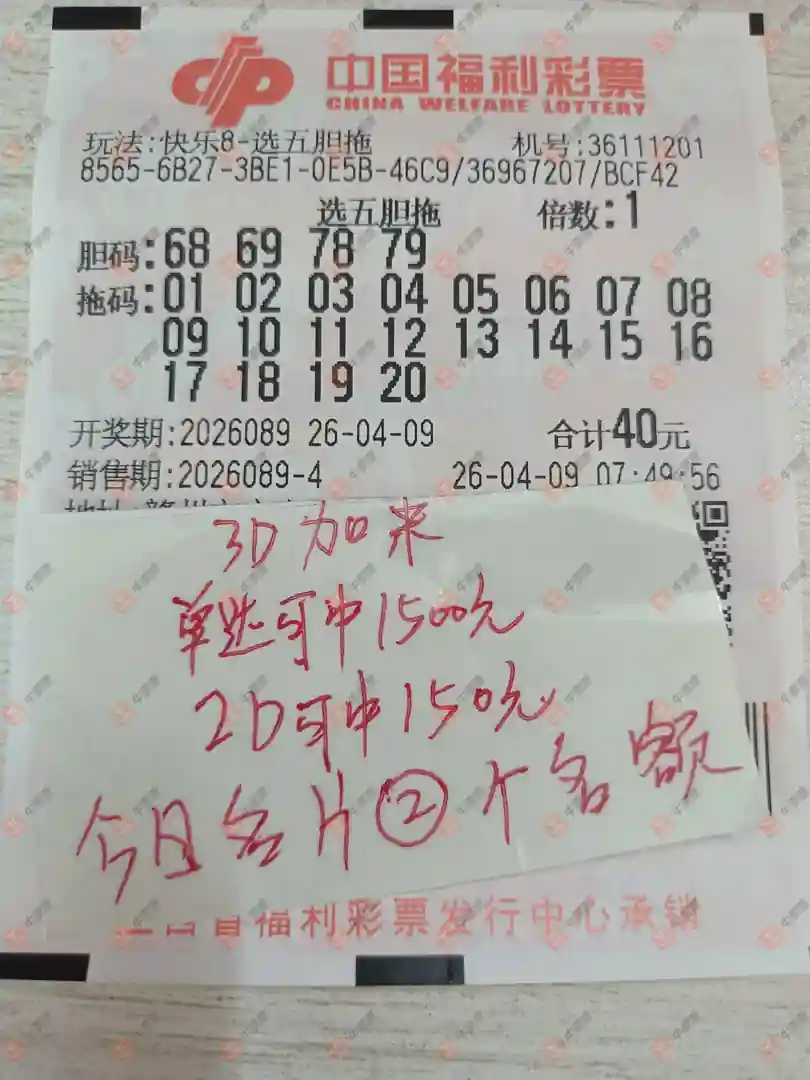 中国福利彩票
CHINA WELFARE LOTTERY
玩法:快乐8-选五胆拖 机号:36111201
8565-6B27-3BE1-0E5B-46C9/36967207/BCF42
选五胆拖 倍数:1
胆码:68 69 78 79
拖码:01 02 03 04 05 06 07 08
09 10 11 12 13 14 15 16
17 18 19 20
开奖期:2026089 26-04-09 合计40元
销售期:2026089-4 26-04-09 07:49:56
3D加来
单选可中1500元
2D可中150元
今日名片②个名额
省福利彩票发行中心承销